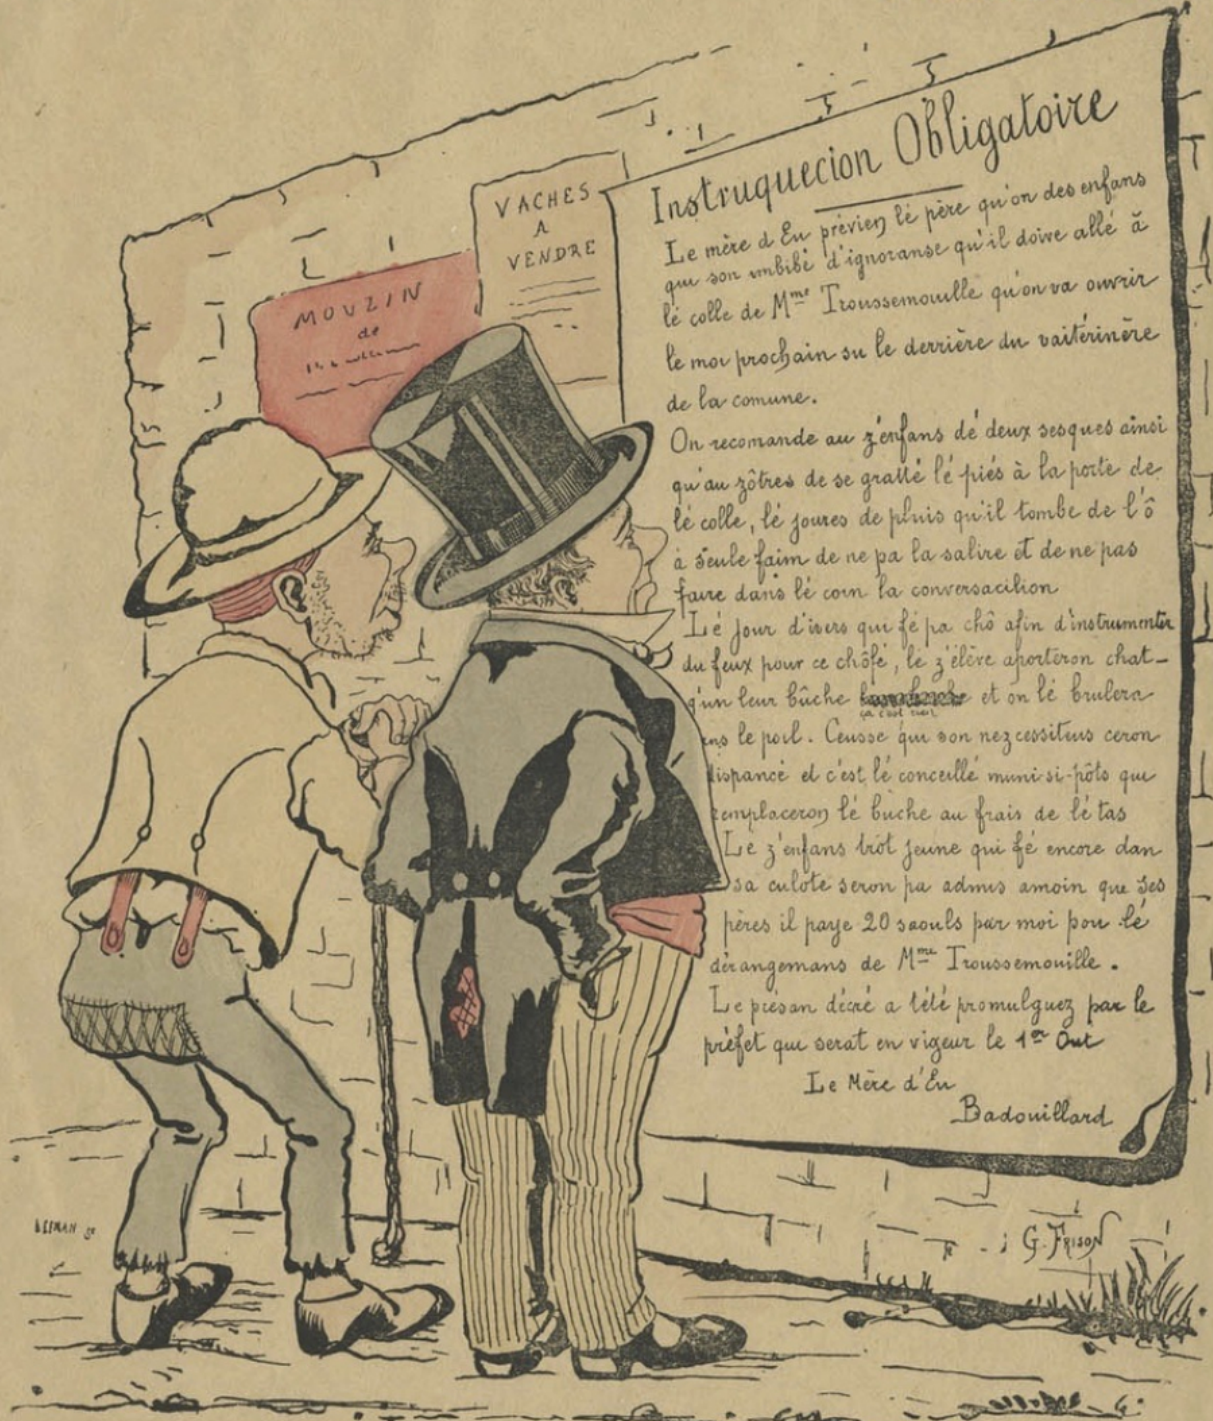 VACHES
A
VENDRE
MOUZIN
de
Instruquecion Obligatoire
Le mère d'Eu prévien lé père qu'on des enfans
qui son imbibé d'ignoranse qu'il doive allé à
lé colle de Mme Troussemouille qu'on va ouvrir
le moi prochain su le derrière du vaitérinère
de la comune.
On recomande au z'enfans dé deux sesques ainsi
qu'au zôtres de se gratté lé piés à la porte de
lé colle, lé joures de pluis qu'il tombe de l'ô
à seule faim de ne pa la salire et de ne pas
faire dans lé coin la conversacilion
Lé jour d'ivers qui fé pa chô afin d'instrumenter
du feux pour ce chôfé, lé z'élève aporteron chat-
q'un leur bûche et on lé brulera
ns le poil. Ceusse qui son nezcessiteus ceron
dispancé et c'est lé conceillé muni-si-pôts qui
remplaceron lé buche au frais de lé tas
Lé z'enfans trôt jeune qui fé encore dan
sa culote seron pa admis amoin que ses
pères il paye 20 saouls par moi pou lé
dérangemans de Mme Troussemouille.
Le présan décré a tété promulguez par le
préfet qui serat en vigeur le 1er Out
Le Mère d'Eu
Badouillard
G. FRISON